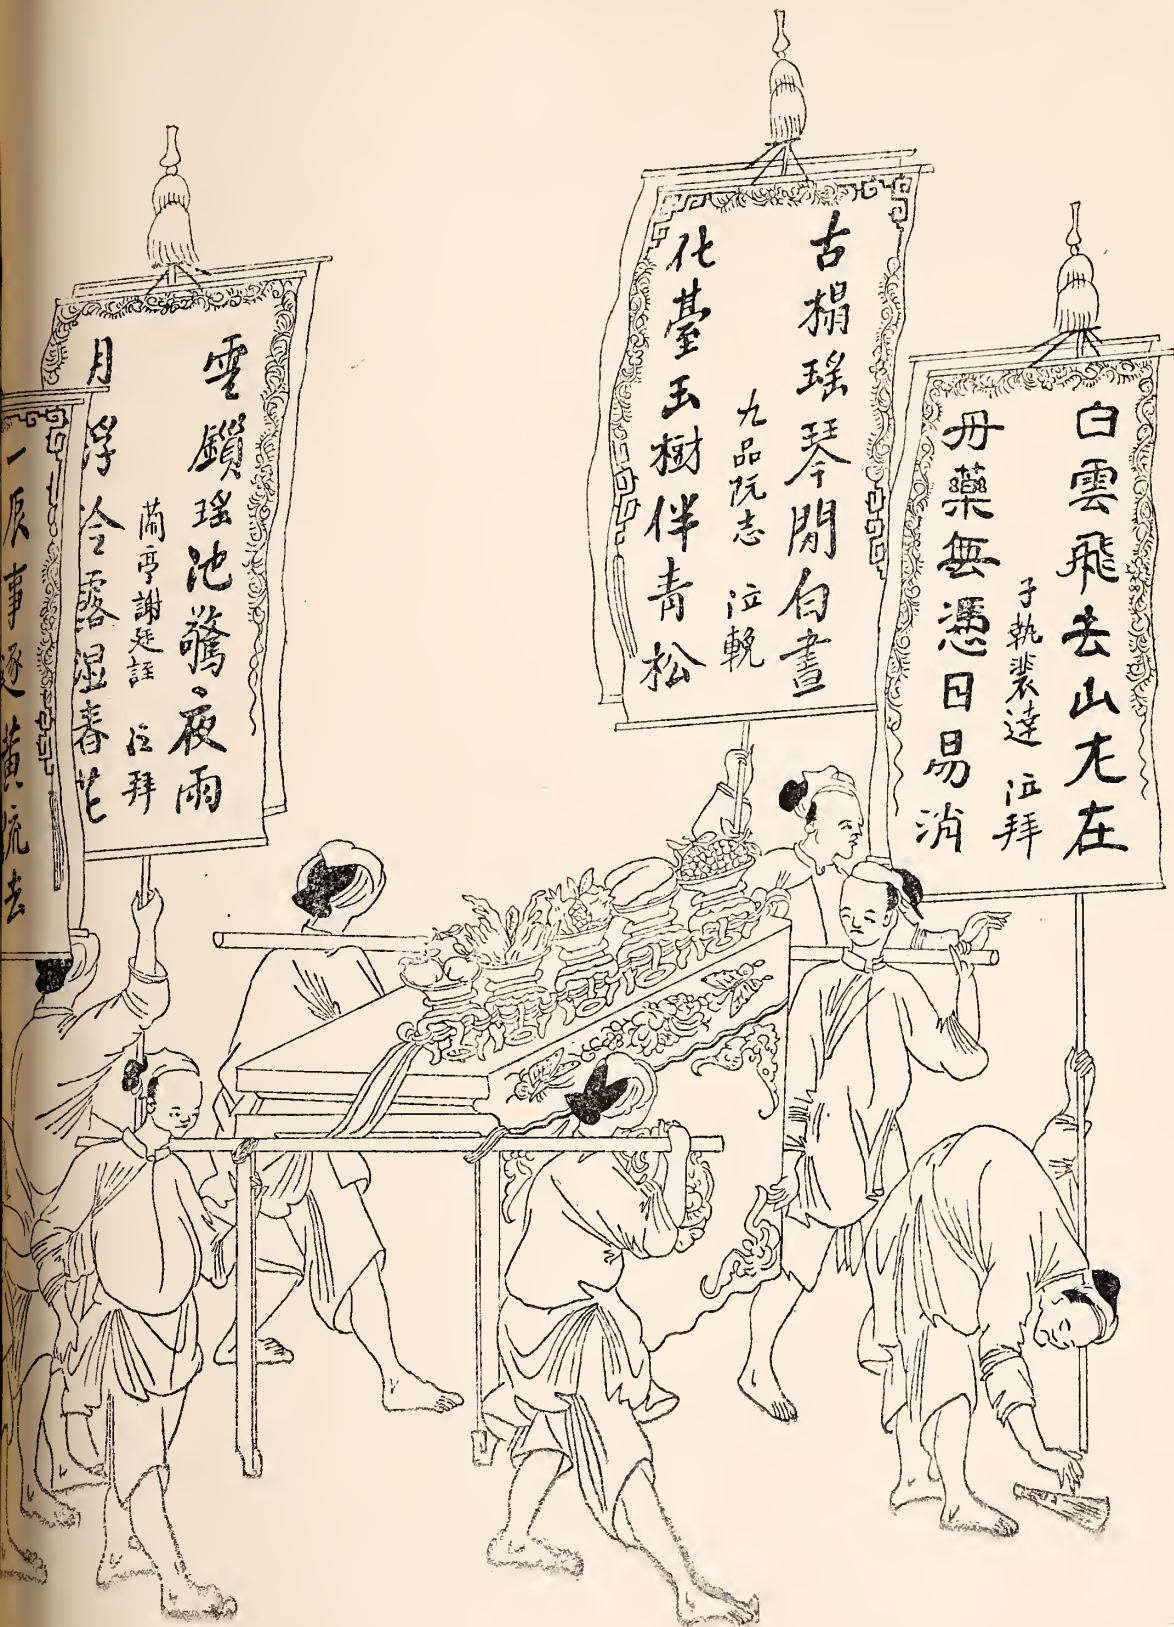 白雲飛去山尤在
子執裴達 泣拜
丹藥無憑日易消
古榻瑤琴閒白晝
九品阮志 泣輓
化臺玉樹伴青松
雲鎖瑤池驚夜雨
蘭亭謝廷誥 泣拜
月浮冷露湿春花
事逐黃流去